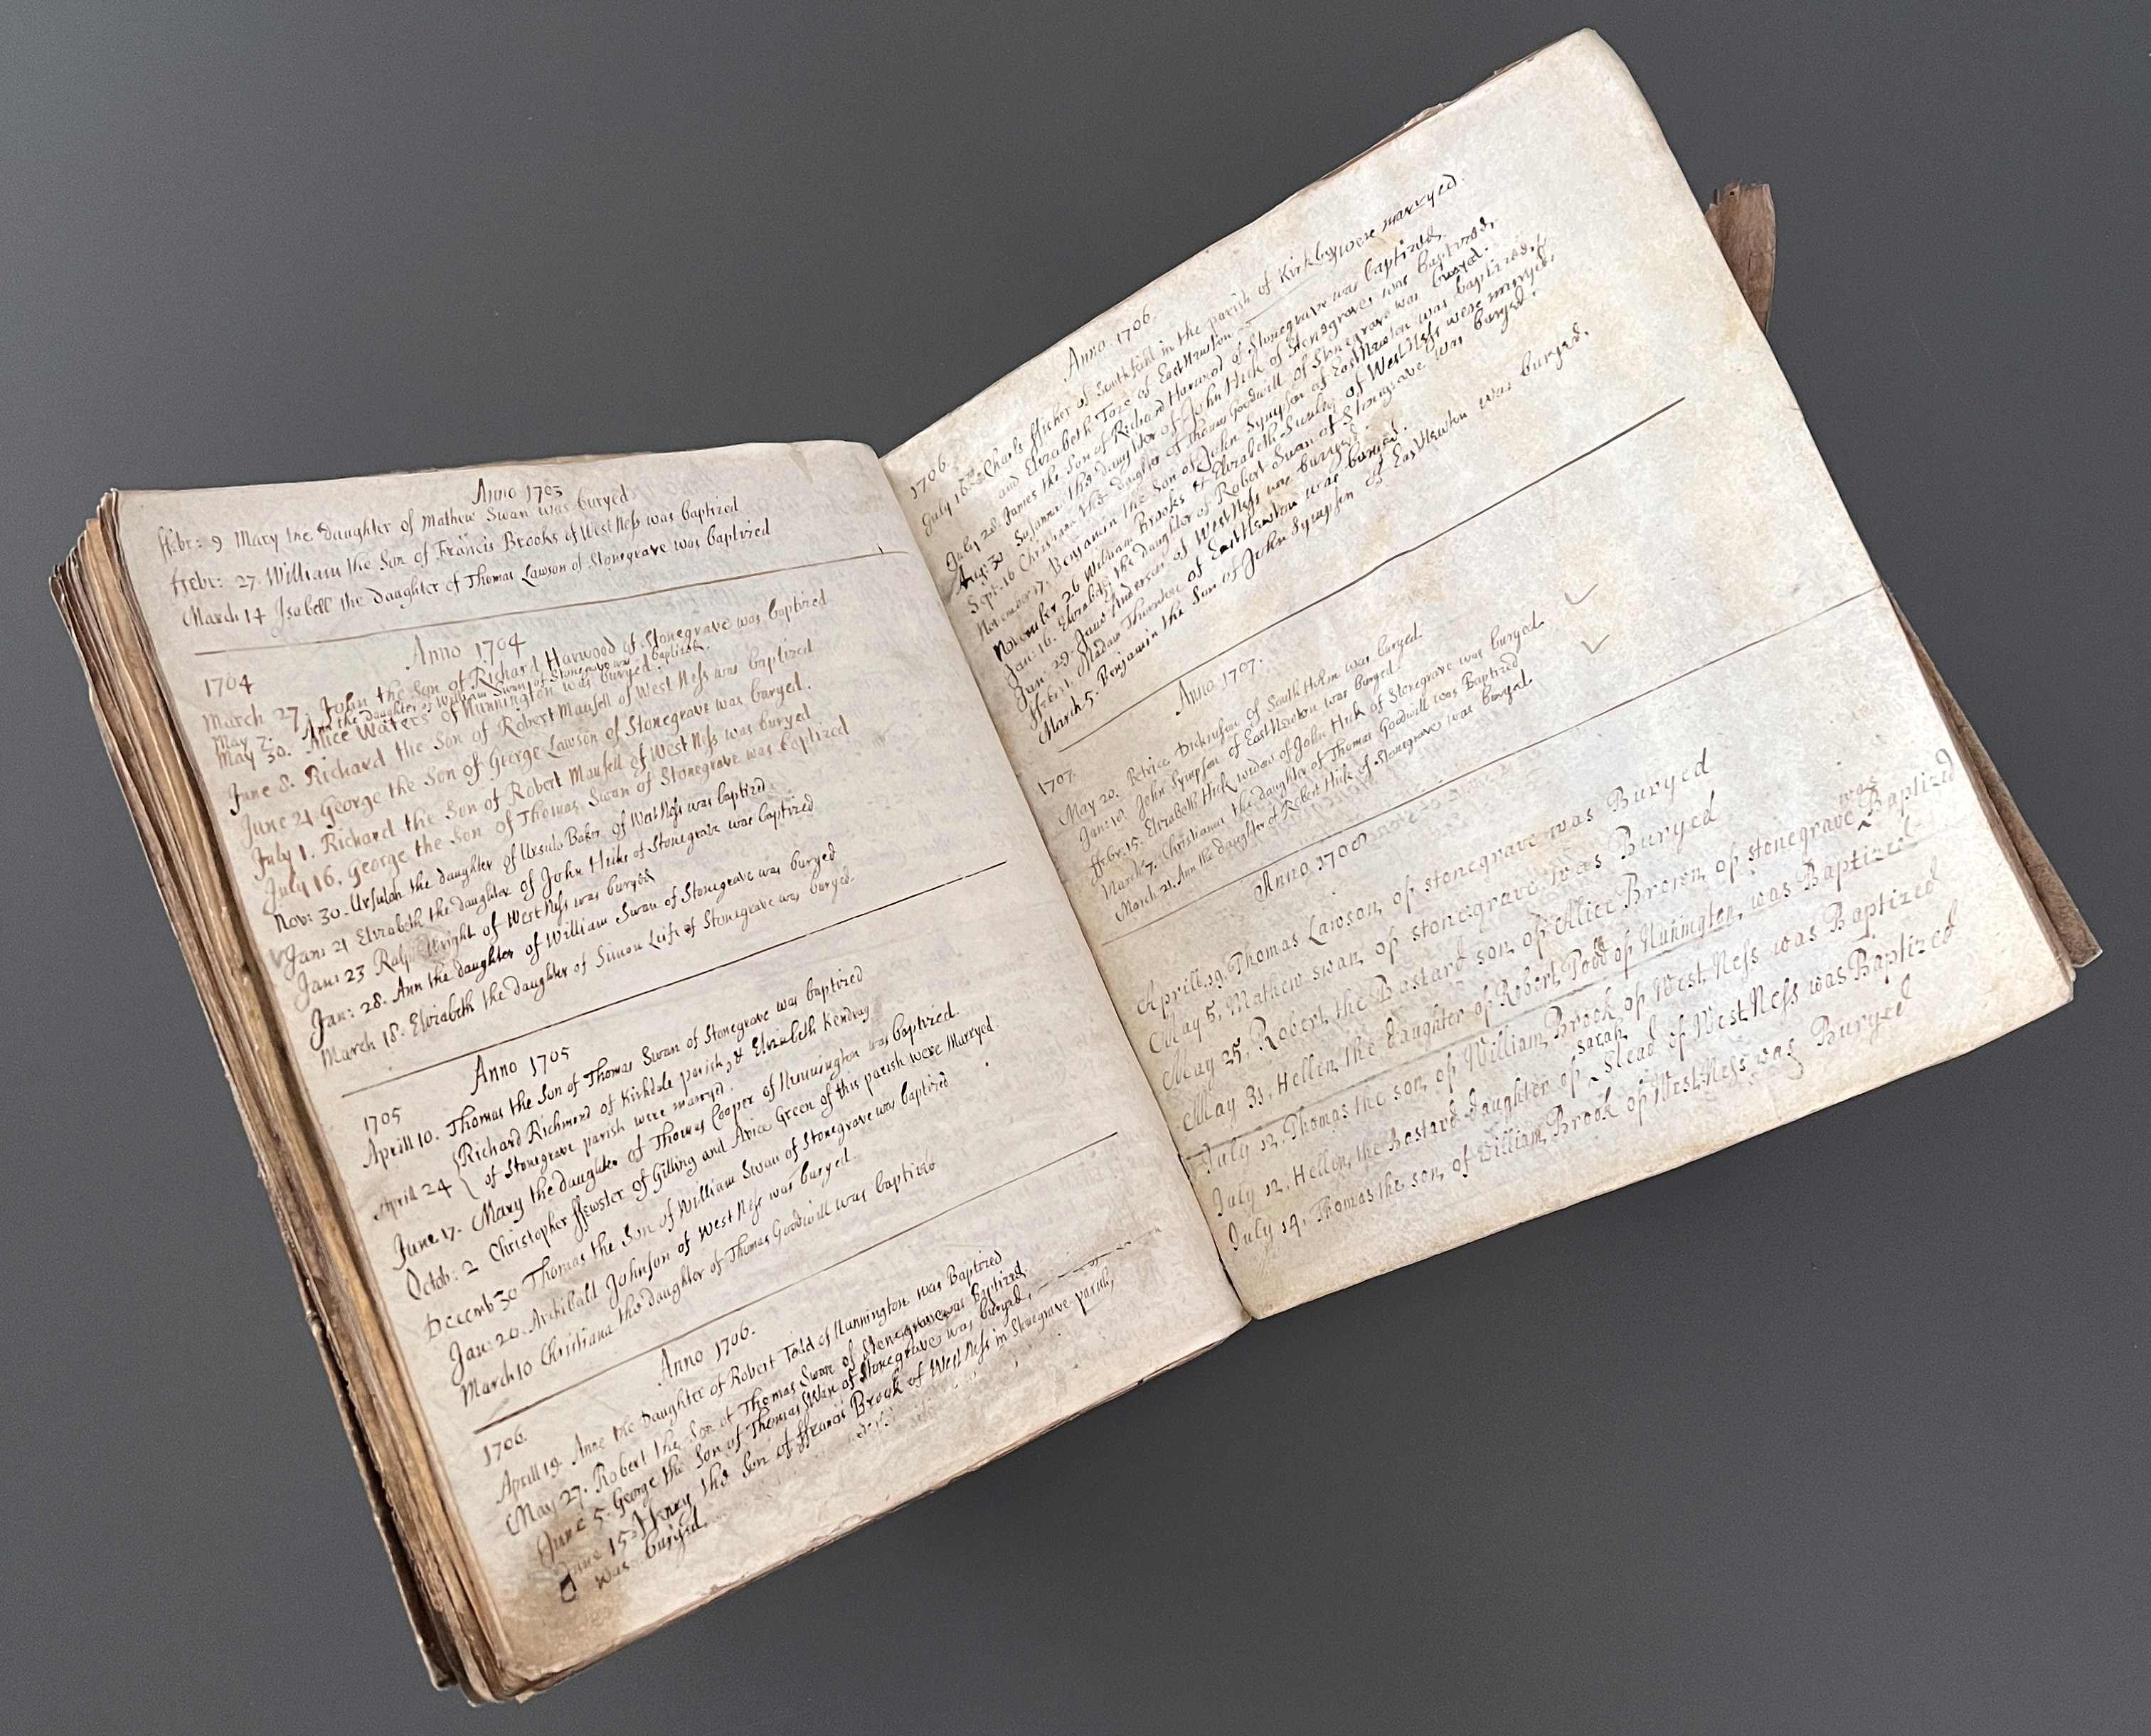 Anno 1703
ffebr: 9 Mary the daughter of Mathew Swan was buryed
ffebr: 27. William the Son of Francis Brooks of West Ness was baptized
March 14 Isabell the daughter of Thomas Lawson of Stonegrave was baptized
Anno 1704
1704
March 27. John the Son of Richard Harwood of Stonegrave was baptized
May 7. Ann the Daughter of William Swan of Stonegrave was baptized.
May 30. Alice Waters of Nunnington was buryed.
June 8. Richard the Son of Robert Mansell of West Ness was baptized
June 21 George the Son of George Lawson of Stonegrave was buryed.
July 1. Richard the Son of Robert Mansell of West Ness was buryed
July 16. George the Son of Thomas Swan of Stonegrave was baptized
Nov: 30. Ursulah the daughter of Ursula Baker of West Ness was baptized
Jan: 21 Elizabeth the daughter of John Hicke of Stonegrave was baptized
Jan: 23 Ralph Wright of West Ness was buryed
Jan: 28. Ann the daughter of William Swan of Stonegrave was buryed
March 18. Elizabeth the daughter of Simon of Stonegrave was buryed.
Anno 1705
1705
Aprill 10. Thomas the Son of Thomas Swan of Stonegrave was baptized
Aprill 24 Richard Richmond of Kirkdale parish, & Elizabeth Kendray
of Stonegrave parish were marryed.
June 17. Mary the daughter of Thomas Cooper of Nunnington was baptized.
Octob: 2 Christopher ffewster of Gilling and Avice Green of this parish were Marryed.
Decemb 30 Thomas the Son of William Swan of Stonegrave was baptized
Jan: 20. Archibald Johnson of West Ness was buryed.
March 10 Christiana the daughter of Thomas Goodwill was baptized
Anno 1706.
1706.
Aprill 19 Anne the Daughter of Robert Todd of Nunnington was Baptized
May 27. Robert the Son of Thomas Swan of Stonegrave was baptized.
June 5. George the Son of Thomas Swan of Stonegrave was buryed.
June 15. Henry the Son of ffrancis Brook of West Ness in Stonegrave parish,
was buryed.
Anno 1706.
1706.
July 16 Charls ffischer of in the parish of Kirkby were marryed.
and Elizabeth of East Newton
July 28. James the Son of Richard Harwood of Stonegrave was baptized.
Aug: 30 Susanna the daughter of John Hick of Stonegrave was baptized.
Sept. 16 Christiana the daughter of Thomas Goodwill of Stonegrave was buryed.
November 17. Benjamin the Son of John Sympson of East Newton was baptized.
November 26 William Brooks & Elizabeth of West Ness were marryed.
Jan: 16. Elizabeth the daughter of Robert Swan of Stonegrave was buryed.
Jan: 29. Jane Anderson of West Ness was buryed.
ffebr: 1. Madam Thornton of East Newton was buryed.
March 5. Benjamin the Son of John Sympson of East Newton was buryed.
Anno 1707.
1707.
May 20. Dickinson of South Holm was buryed.
Jan: 10. John Sympson of East Newton was buryed.
ffebr: 15. Elizabeth Hick widow of John Hick of Stonegrave was buryed.
March 7. Christiana the daughter of Thomas Goodwill was Baptized
March 21. Ann the daughter of Robert Hick of Stonegrave was buryed.
Anno 1708
Aprill. 19. Thomas Lawson, of stonegrave was Buryed
May 5. Mathew swan, of stonegrave was Buryed
May 25. Robert, the Bastard son, of Alice Brown, of stonegrave was Baptized
May 31. Hellin, the daughter of Robert, Todd of Nunington, was Baptized
July 12. Thomas the son, of William, Brook, of West Ness was Baptized
July 12. Hellin, the Bastard daughter of Sarah Slead of West Ness was Baptized
July 14. Thomas the son, of William, Brook of West Ness, was Buryed